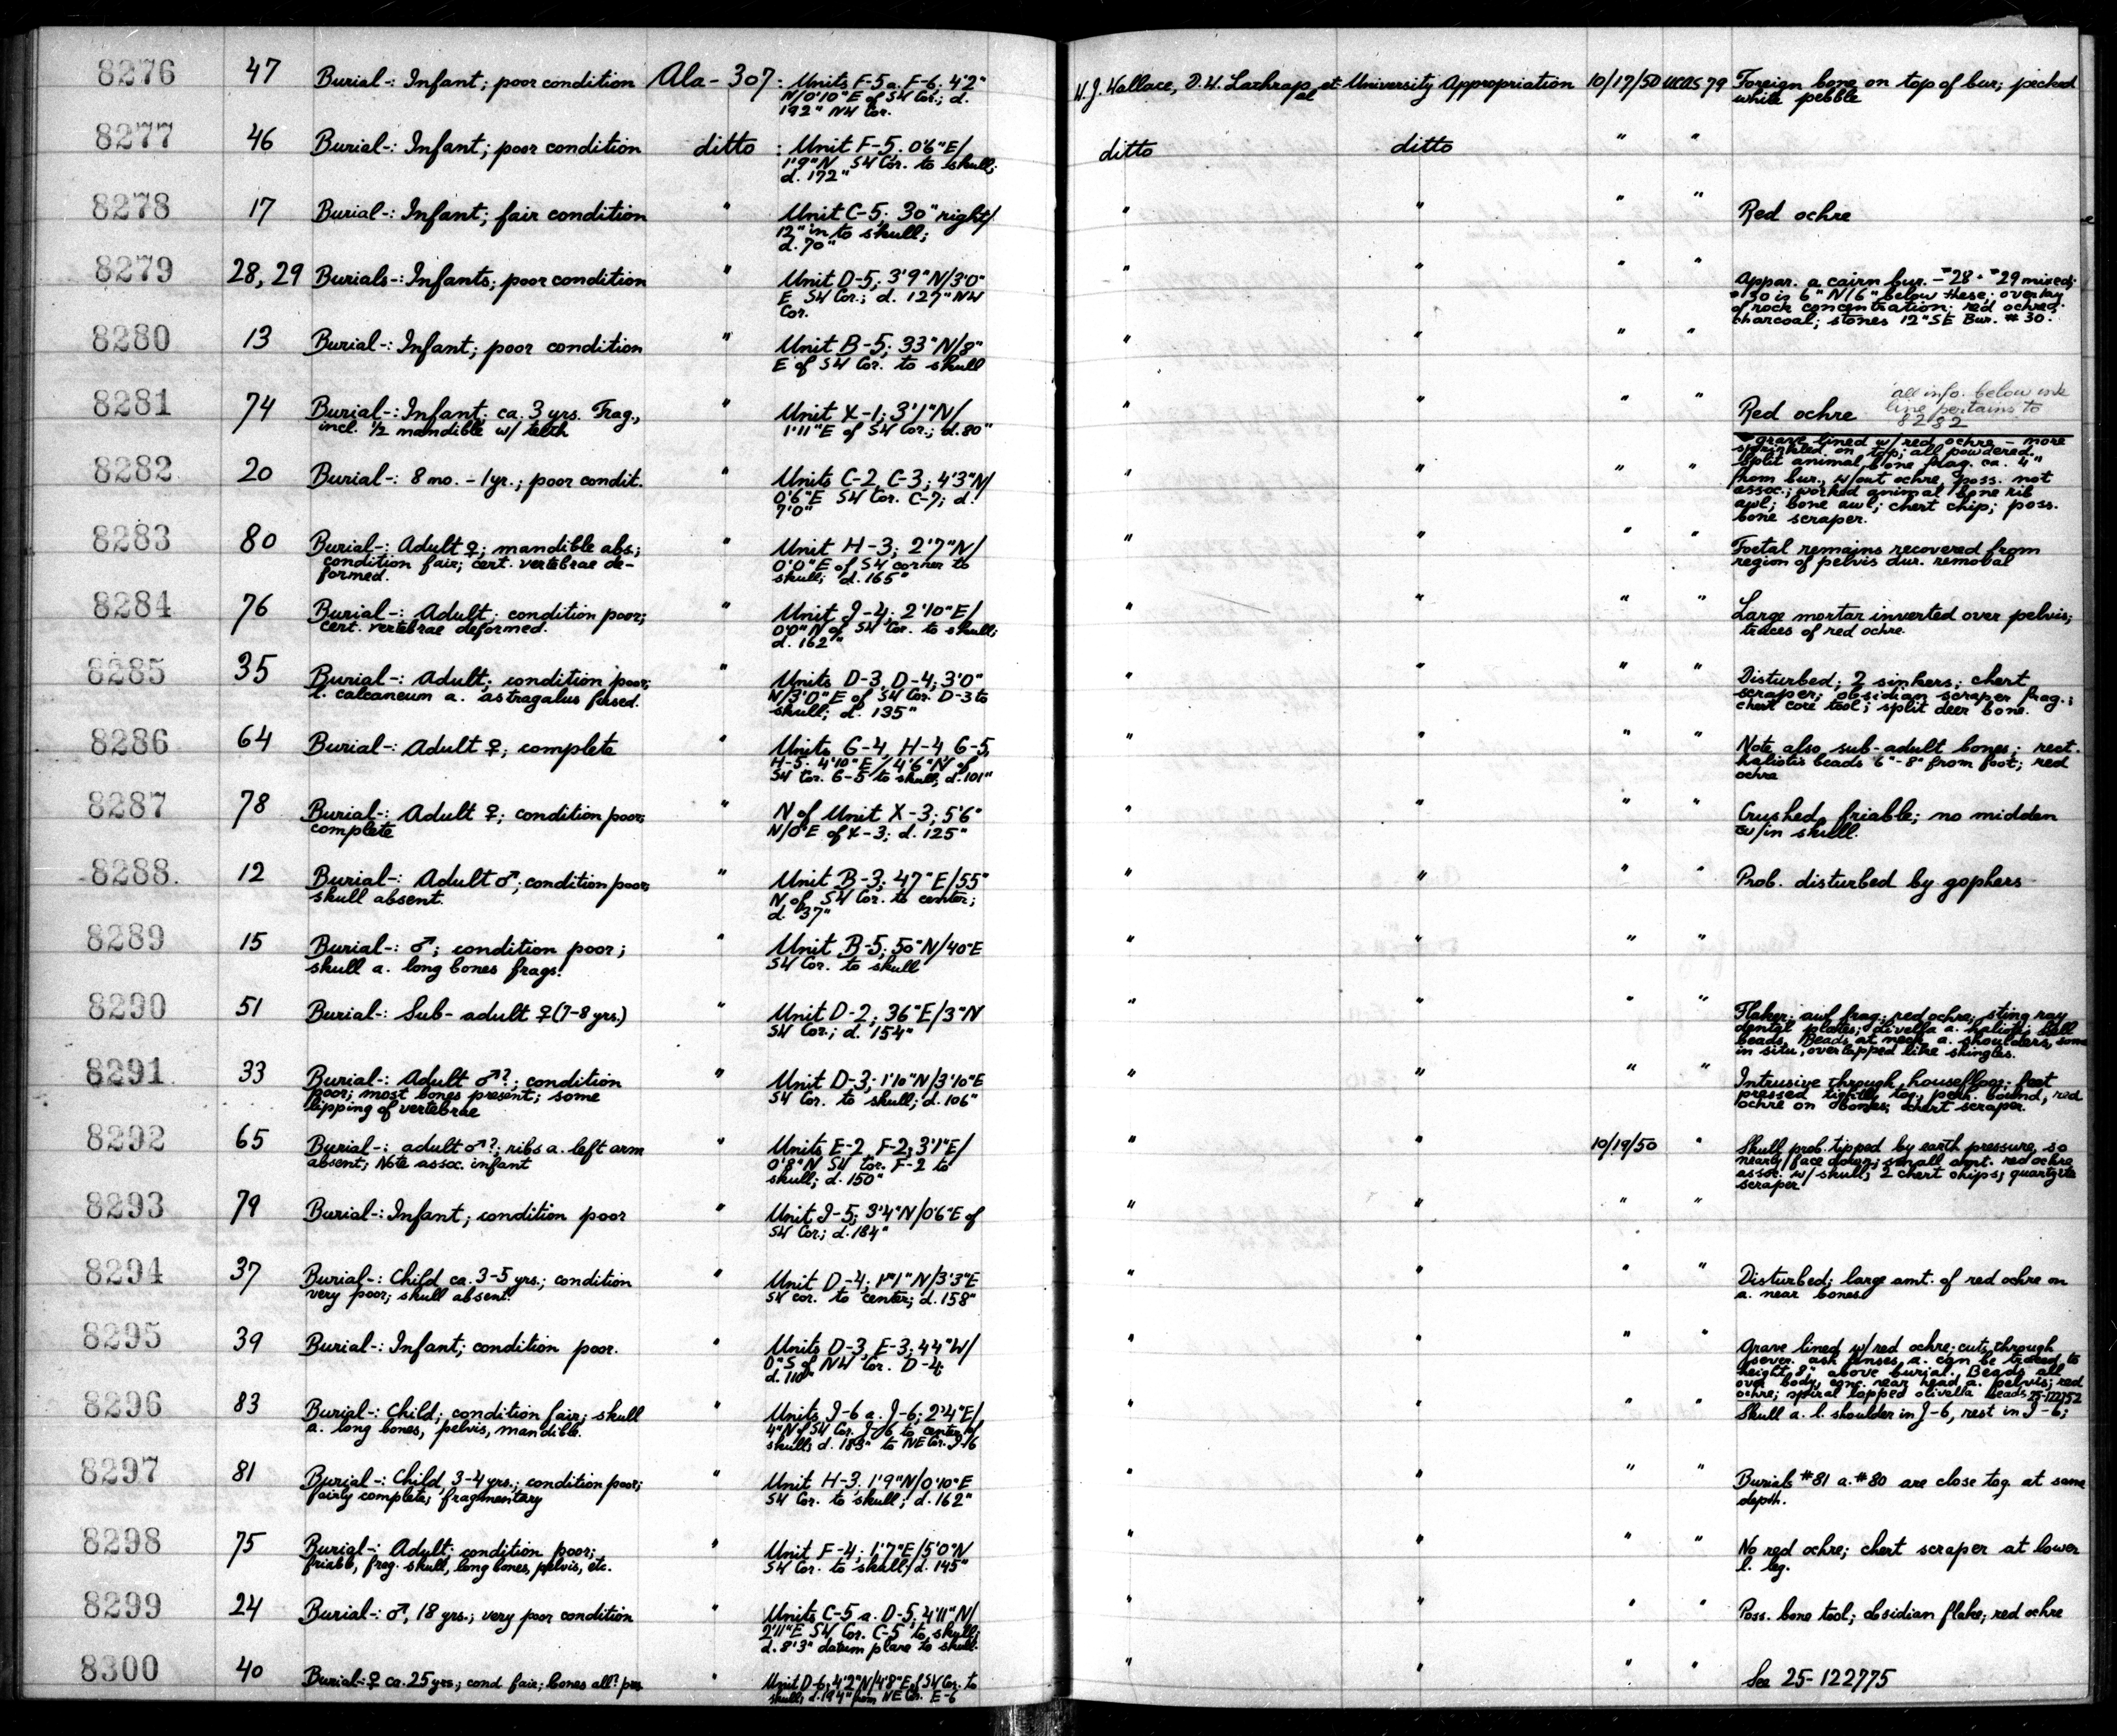 8276 47 Burial-: Infant; poor condition Ala-307: Units F-5 a. F-6. 4'2" W.J. Wallace, D.W. Lathrap, et University Appropriation 10/17/50 UCAS 79 Foreign bone on top of bur; pecked
N/0'10"E of SW Cor.; d. al white pebble
192" NW Cor.
8277 46 Burial-: Infant; poor condition ditto : Unit F-5. 0'6"E/ ditto ditto " "
1'9"N SW Cor. to skull;
d. 172"
8278 17 Burial-: Infant; fair condition " Unit C-5; 30" right/ " " " " Red ochre
12" in to skull;
d. 70"
8279 28, 29 Burials-: Infants; poor condition " Unit D-5; 3'9"N/3'0" " " " " Appar. a cairn bur. - #28 - #29 mixed;
E SW Cor.; d. 127" NW #30 is 6"N/6" below these; overlay
Cor. of rock concentration; red ochre;
charcoal; stones 12" SE Bur. #30.
8280 13 Burial-: Infant; poor condition " Unit B-5; 33"N/8" " " " "
E of SW Cor. to skull
8281 74 Burial-: Infant; ca. 3 yrs. Frag., " Unit X-1; 3'1"N/ " " " " Red ochre all info. below ink
incl. 1/2 mandible w/ teeth 1'11"E of SW Cor.; d. 80" line pertains to
8282
grave lined w/ red ochre - more
sprinkled on top; all powdered.
8282 20 Burial-: 8 mo. - 1yr.; poor condit. " Units C-2, C-3; 4'3"N/ " " " " Split animal bone frag. ca. 4"
0'6"E SW Cor. C-7; d. from bur., w/out ochre, poss. not
7'0" assoc.; worked animal bone rib
awl; bone awl; chert chip; poss.
bone scraper.
8283 80 Burial-: Adult ♀; mandible abs; " Unit H-3; 2'7"N/ " " " " Foetal remains recovered from
condition fair; cert. vertebrae de- 0'0"E of SW corner to region of pelvis dur. removal
formed. skull; d. 165"
8284 76 Burial-: Adult; condition poor; " Unit J-4; 2'10"E/ " " " " Large mortar inverted over pelvis;
cert. vertebrae deformed. 0'0"N of SW Cor. to skull; traces of red ochre.
d. 162"
8285 35 Burial-: Adult; condition poor; " Units D-3, D-4; 3'0" " " " " Disturbed; 2 sinkers; chert
l. calcaneum a. astragalus fused. N/3'0"E of SW Cor. D-3 to scraper; obsidian scraper frag.;
skull; d. 135" chert core tool; split deer bone.
8286 64 Burial-: Adult ♀; complete " Units G-4, H-4, G-5, " " " " Note also sub-adult bones; rect.
H-5. 4'10"E/4'6"N of haliotis beads 6"-8" from foot; red
SW Cor. G-5 to skull; d. 101" ochre
8287 78 Burial-: Adult ♀; condition poor; " N of Unit X-3; 5'6" " " " " Crushed, friable; no midden
complete N/0"E of X-3; d. 125" w/in skull.
8288 12 Burial-: Adult ♂; condition poor; " Unit B-3; 47"E/55" " " " " Prob. disturbed by gophers
skull absent. N of SW Cor. to center;
d. 37"
8289 15 Burial-: ♂; condition poor; " Unit B-5; 50"N/40"E " " " "
skull a. long bones frags. SW Cor. to skull
8290 51 Burial-: Sub-adult ♀ (7-8 yrs.) " Unit D-2; 36"E/3"N " " " " Flaker; awl frag.; red ochre; sting ray
SW Cor.; d. 154" dental plates; olivella a. haliotis shell
beads. Beads at neck a. shoulders, some
in situ, overlapped like shingles.
8291 33 Burial-: Adult ♂?; condition " Unit D-3; 1'10"N/3'10"E " " " " Intrusive through housefloor; feet
poor; most bones present; some SW Cor. to skull; d. 106" pressed tightly tog., perh. bound, red
lipping of vertebrae ochre on bones; chert scraper.
8292 65 Burial-: adult ♂?; ribs a. left arm " Units E-2, F-2; 3'1"E/ " " 10/19/50 " Skull prob. tipped by earth pressure, so
absent; Note assoc. infant 0'8"N SW Cor. F-2 to nearly face down; small amt. red ochre
skull; d. 150" assoc. w/ skull; 2 chert chips; quartzite
scraper.
8293 79 Burial-: Infant; condition poor " Unit I-5; 3'4"N/0'6"E of " " " "
SW Cor.; d. 184"
8294 37 Burial-: Child ca. 3-5 yrs.; condition " Unit D-4; 1'1"N/3'3"E " " " " Disturbed; large amt. of red ochre on
very poor; skull absent. SW cor. to center; d. 158" a. near bones
8295 39 Burial-: Infant; condition poor. " Units D-3, E-3; 44"W/ " " " " Grave lined w/ red ochre; cuts through
0"S of NW Cor. D-4; sever. ash lenses, a. can be traced to
d. 110" height 8" above burial. Beads all
over body, conc. near head a. pelvis; red
ochre; spiral lopped olivella beads 25-122752
8296 83 Burial-: Child; condition fair; skull " Units I-6 a. J-6; 2'4"E/ " " " " Skull a. l. shoulder in J-6, rest in I-6;
a. long bones, pelvis, mandible. 4"N of SW Cor. J-6 to center of
skull; d. 183" to NE Cor. J-6
8297 81 Burial-: Child, 3-4 yrs.; condition poor; " Unit H-3. 1'9"N/0'10"E " " " " Burials #81 a. #80 are close tog. at same
fairly complete; fragmentary SW Cor. to skull; d. 162" depth.
8298 75 Burial-: Adult; condition poor; " Unit F-4; 1'7"E/5'0"N " " " " No red ochre; chert scraper at lower
friable, frag. skull, long bones, pelvis, etc. SW Cor. to skull; d. 145" l. leg.
8299 24 Burial-: ♂, 18 yrs.; very poor condition " Units C-5 a. D-5. 4'11"N/ " " " " Poss. bone tool; obsidian flake; red ochre
2'11"E SW Cor. C-5 to skull;
d. 8'3" datum plane to skull.
8300 40 Burial-: ♀ ca. 25 yrs.; cond fair; bones all? pres " Unit D-6; 4'2"N/4'8"E of SW Cor. to " " " " See 25-122775
skull; d. 194" from NE Cor. E-6